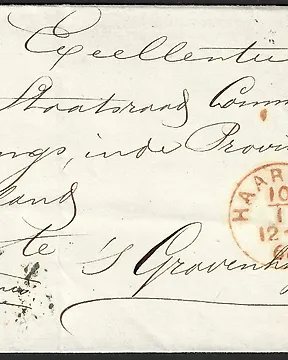 Excellentie
Staatsraad Comm
ings, in de Provin
land
te 's Gravenha
HAAR
10
1
12-